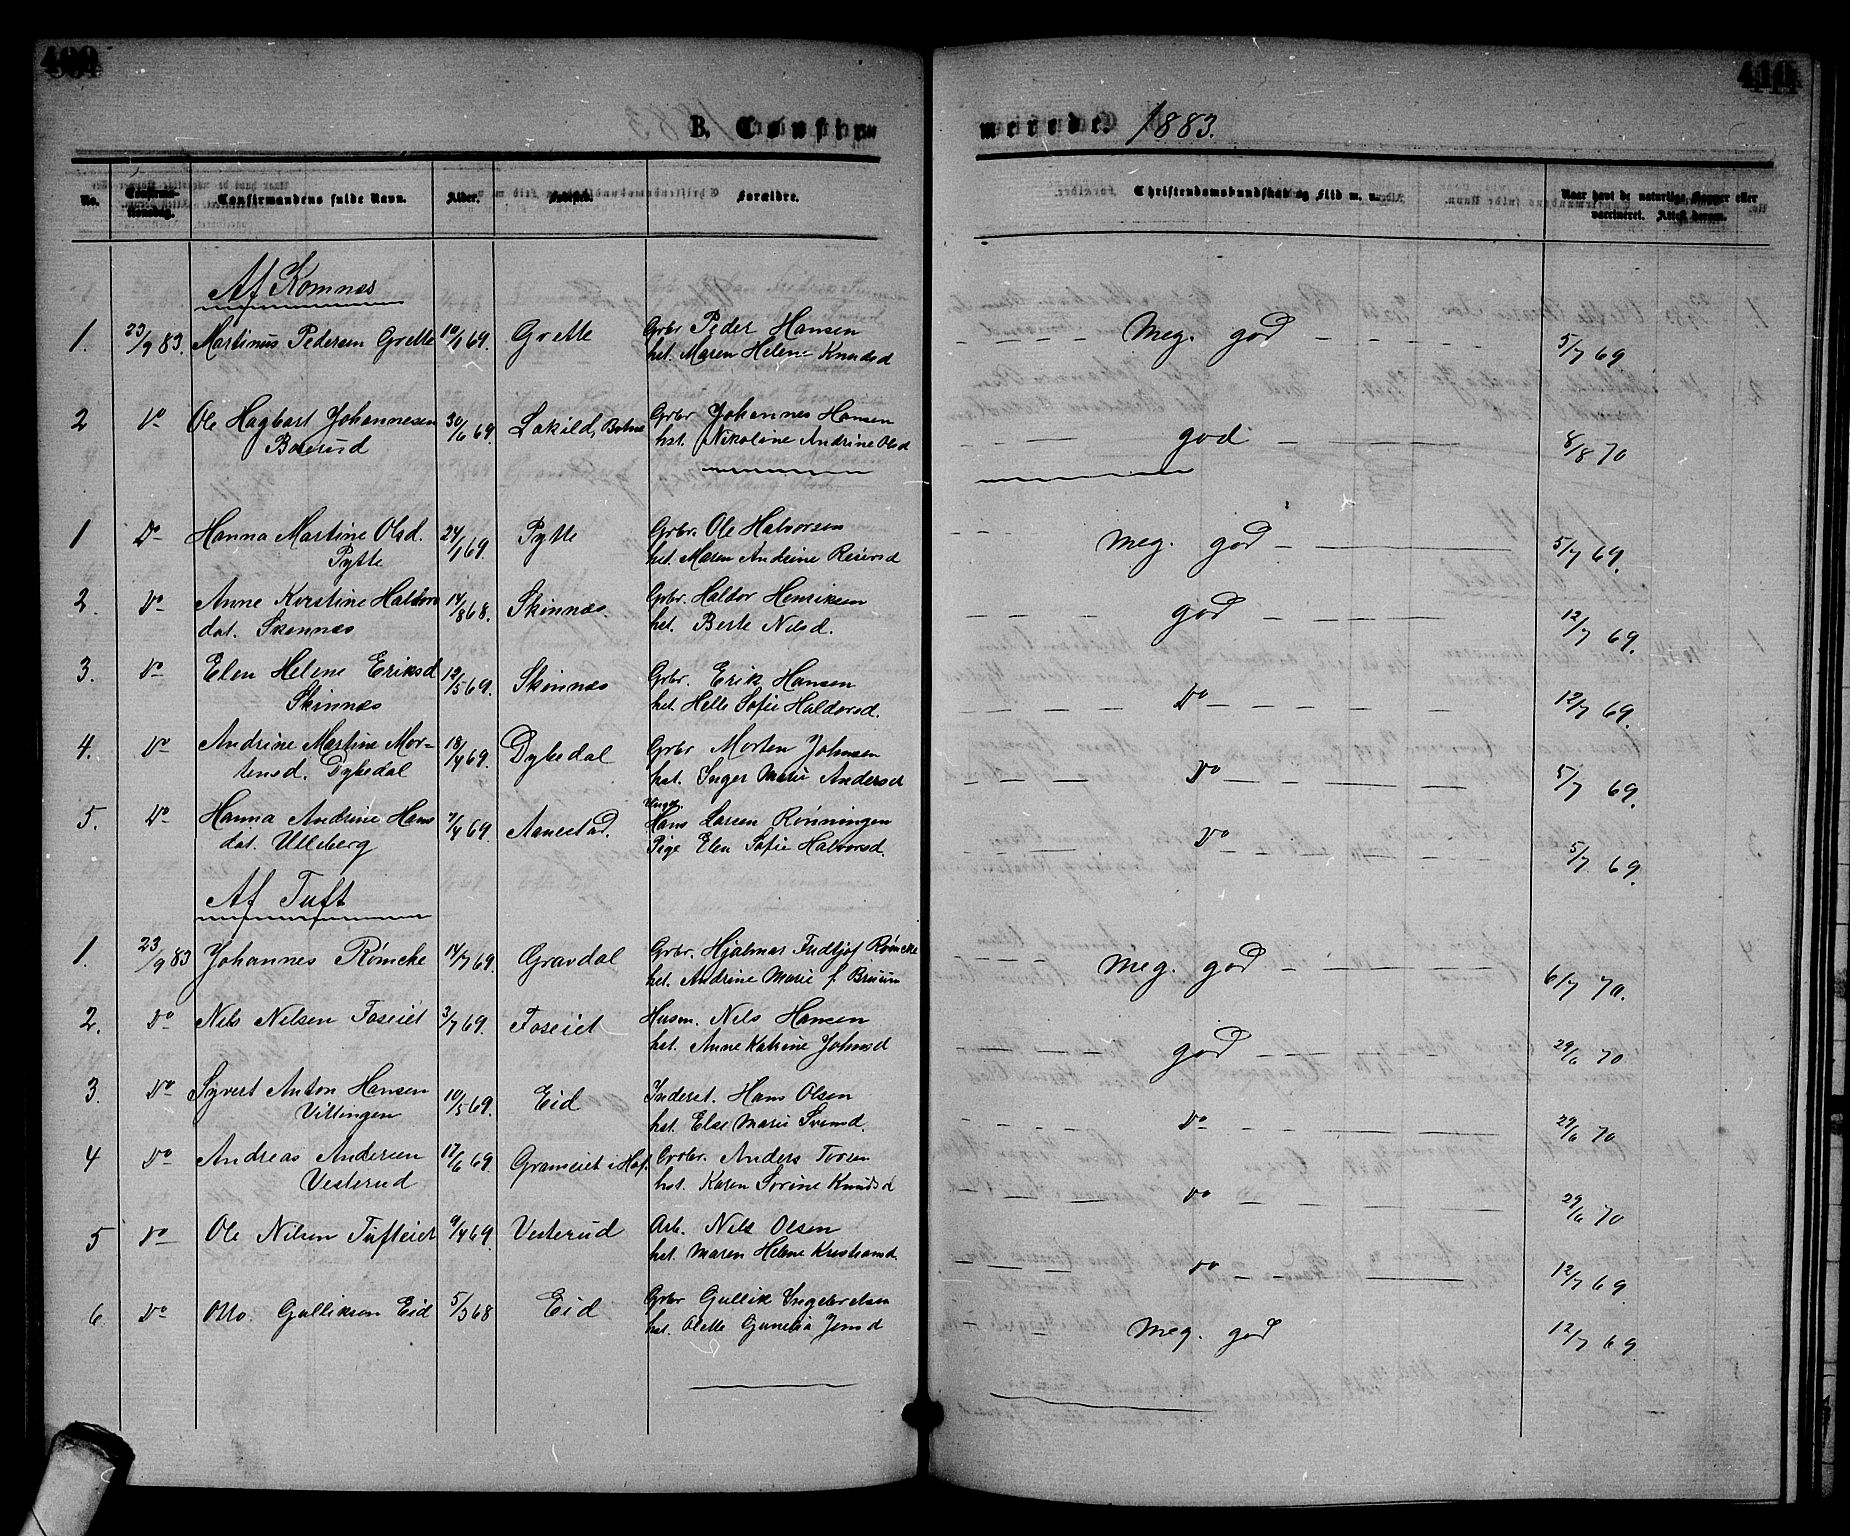 B. Confir-
merede. 1883.
No. Confirma-tionsdag. Confirmandens fulde Navn. Alder. Fødested. Forældre. Christendomskundskab og Flid m. m. Naar havt de naturlige Kopper eller vaccineret. Attest derom.
Af Komnæs
1. 23/9 83. Martinus Pedersen Grette 10/1 69. Grette Grbr Peder Hansen Meg. god 5/7 69.
hst. Maren Helene Knudsd
2 Do Ole Hagbart Johannesen 30/6 69. Lokild, Grbr Johannes Hansen god 8/8 70
Boterud hst. Nikoline Andrine Olsd
1 Do Hanna Martine Olsd. 24/1 69. Pytte Grbr. Ole Halvorsen Meg. god 5/7 69.
Pytte hst. Maren Andrine Reiersd
2. Do Anne Kirstine Haldors 14/8 68. Skinnæs. Grbr. Haldor Henriksen god 12/7 69.
dat. Skinnæs hst. Berte Nilsd.
3. Do Elen Helene Eriksd 12/5 69. Skinnæs Grbr. Erik Hansen Do 12/7 69.
Skinnæs hst. Helle Sofie Haldorsd.
4. Do Andrine Martine Mor- 18/4 69. Dybedal Grbr Morten Johnsen Do 5/7 69.
tensd. Dybedal hst. Inger Marie Andersd
5. Do Hanna Andrine Hans 7/4 69. Aanestad. Ungk. Hans Larsen Rønningen Do 5/7 69.
dat. Ulleberg Pige Elen Sofie Halvorsd.
Af Tuft
1. 23/9 83 Johannes Rømcke 14/7 69. Gravdal Grbr. Hjalmar Fridtjof Rømcke Meg. god 6/7 70.
hst. Andrine Marie f. Bruun
2. Do Nils Nilsen Foseiet 3/7 69. Foseiet Husm. Nils Hansen god 29/6 70
hst. Anne Katrine Johnsd
3. Do Syvert Anton Hansen 10/5 69. Eid Inderst. Hans Olsen Do 29/6 70
Vittingen hst. Else Marie Svensd.
4 Do Andreas Andersen 17/6 69. Grameiet i Haf. Grbr. Anders Toren Do 29/6 70
Vesterud hst. Karen Sorine Knudsd
5 Do Ole Nilsen Tufteiet 9/4 69. Vesterud Arb. Nils Olsen Do 12/7 69.
hst. Maren Helene Kristiansd.
6. Do Otto Gulliksen Eid 5/3 68 Eid Grbr Gullik Ingebretsen Meg. god 12/7 69.
hst. Olette Gunelia Jensd